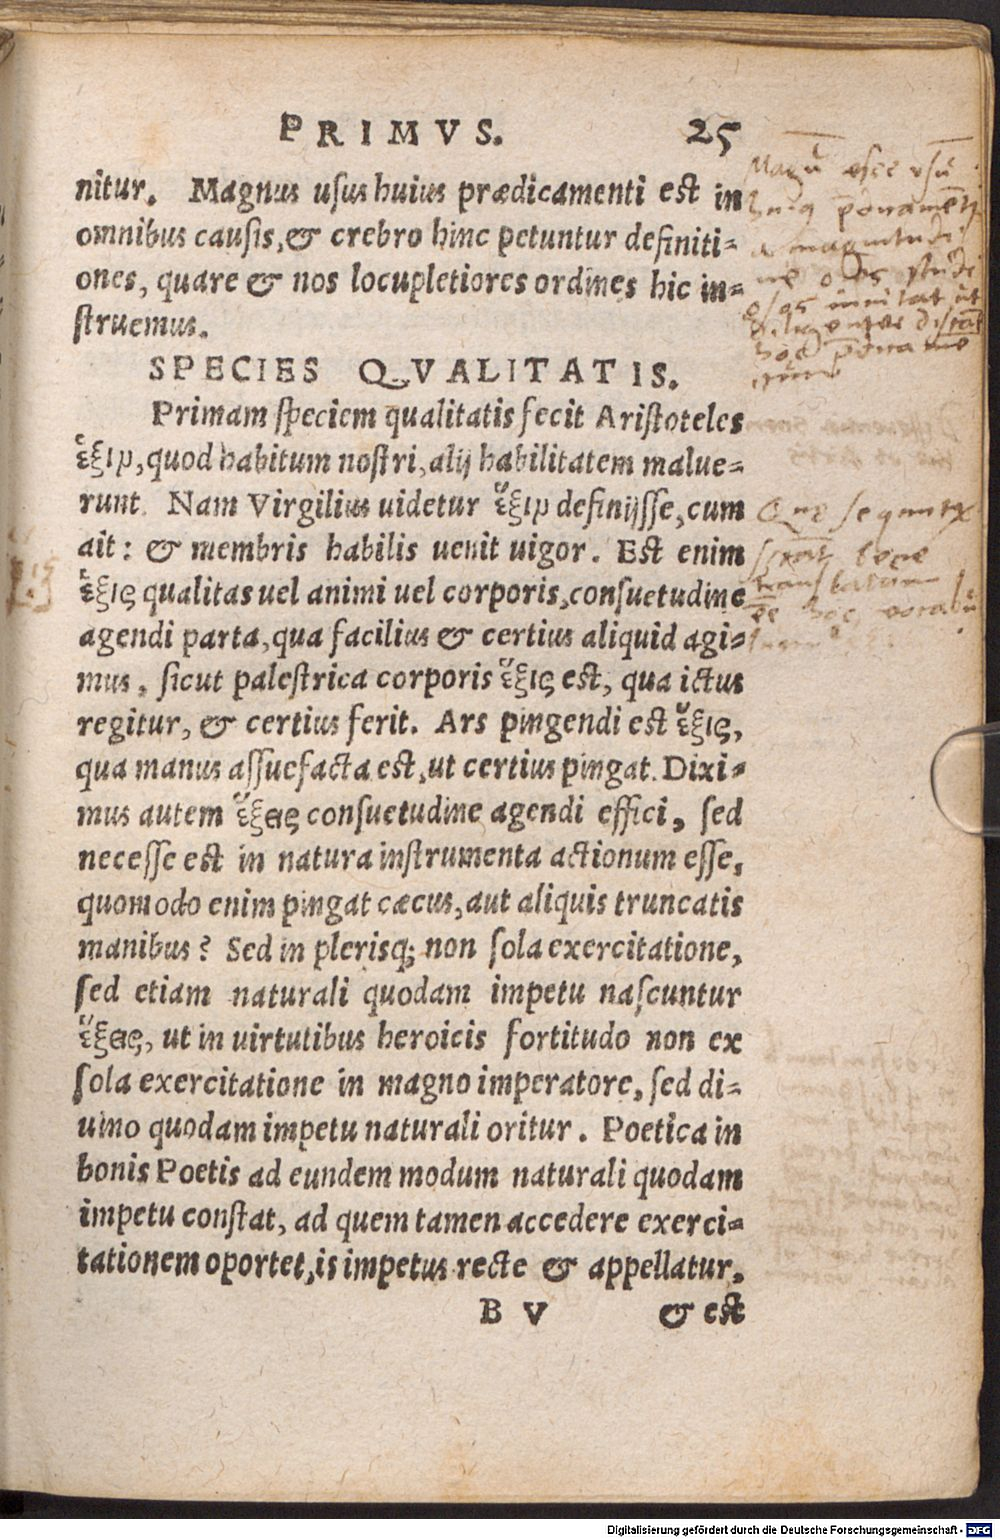 PRIMVS. 25
nitur. Magnus usus huius prædicamenti est in
omnibus causis, & crebro hinc petuntur definiti-
ones, quare & nos locupletiores ordines hic in-
struemus.
SPECIES QVALITATIS.
Primam speciem qualitatis fecit Aristoteles
ἕξιν, quod habitum nostri, alij habilitatem malue-
runt. Nam Virgilius uidetur ἕξιν definijsse, cum
ait: & membris habilis uenit uigor. Est enim
ἕξις qualitas uel animi uel corporis, consuetudine
agendi parta, qua facilius & certius aliquid agi-
mus, sicut palestrica corporis ἕξις est, qua ictus
regitur, & certius ferit. Ars pingendi est ἕξις,
qua manus assuefacta est, ut certius pingat. Dixi-
mus autem ἕξεις consuetudine agendi effici, sed
necesse est in natura instrumenta actionum esse,
quomodo enim pingat cæcus, aut aliquis truncatis
manibus? Sed in plerisq; non sola exercitatione,
sed etiam naturali quodam impetu nascuntur
ἕξεις, ut in uirtutibus heroicis fortitudo non ex
sola exercitatione in magno imperatore, sed di-
uino quodam impetu naturali oritur. Poetica in
bonis Poetis ad eundem modum naturali quodam
impetu constat, ad quem tamen accedere exerci-
tationem oportet, is impetus recte & appellatur,
B V & est
Magnū esse usū
Digitalisierung gefördert durch die Deutsche Forschungsgemeinschaft - DFG